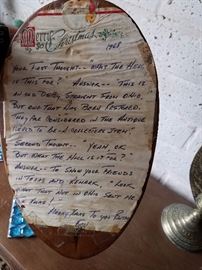 Merry Christmas
1968
Your First Thought -- What the Hell
is this for? Answer -- This is
an old Tray Straight from Ohio,
But one that has been restored.
They are considered in the antique
field to be a collectors item.
Second Thought -- Yeah, or
But what the Hell is it for?
Answer -- To show your friends
in Texas and remark, "Look
what that nut in Ohio sent me
for Xmas!
Merry Xmas to you